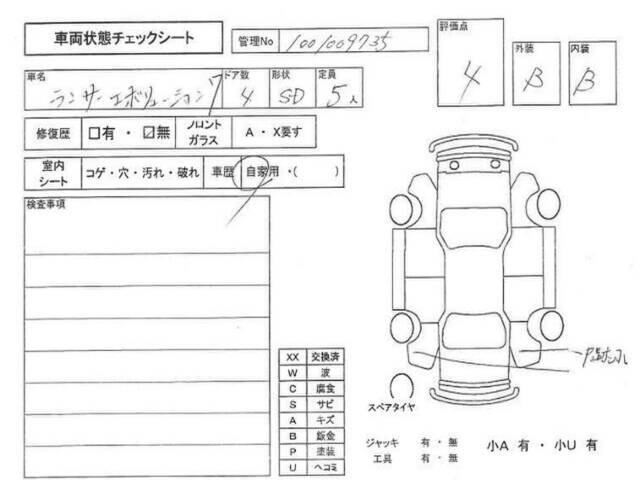 車両状態チェックシート
管理No 1001009735
評価点 4
外装 B
内装 B
車名 ランサーエボリューション7
ドア数 4
形状 SD
定員 5人
修復歴 □有・☑無
フロントガラス A・X要す
室内シート コゲ・穴・汚れ・破れ
車歴 自家用・( )
検査事項
XX 交換済
W 波
C 腐食
S サビ
A キズ
B 鈑金
P 塗装
U ヘコミ
スペアタイヤ
ジャッキ 有・無
工具 有・無
小A 有・小U 有